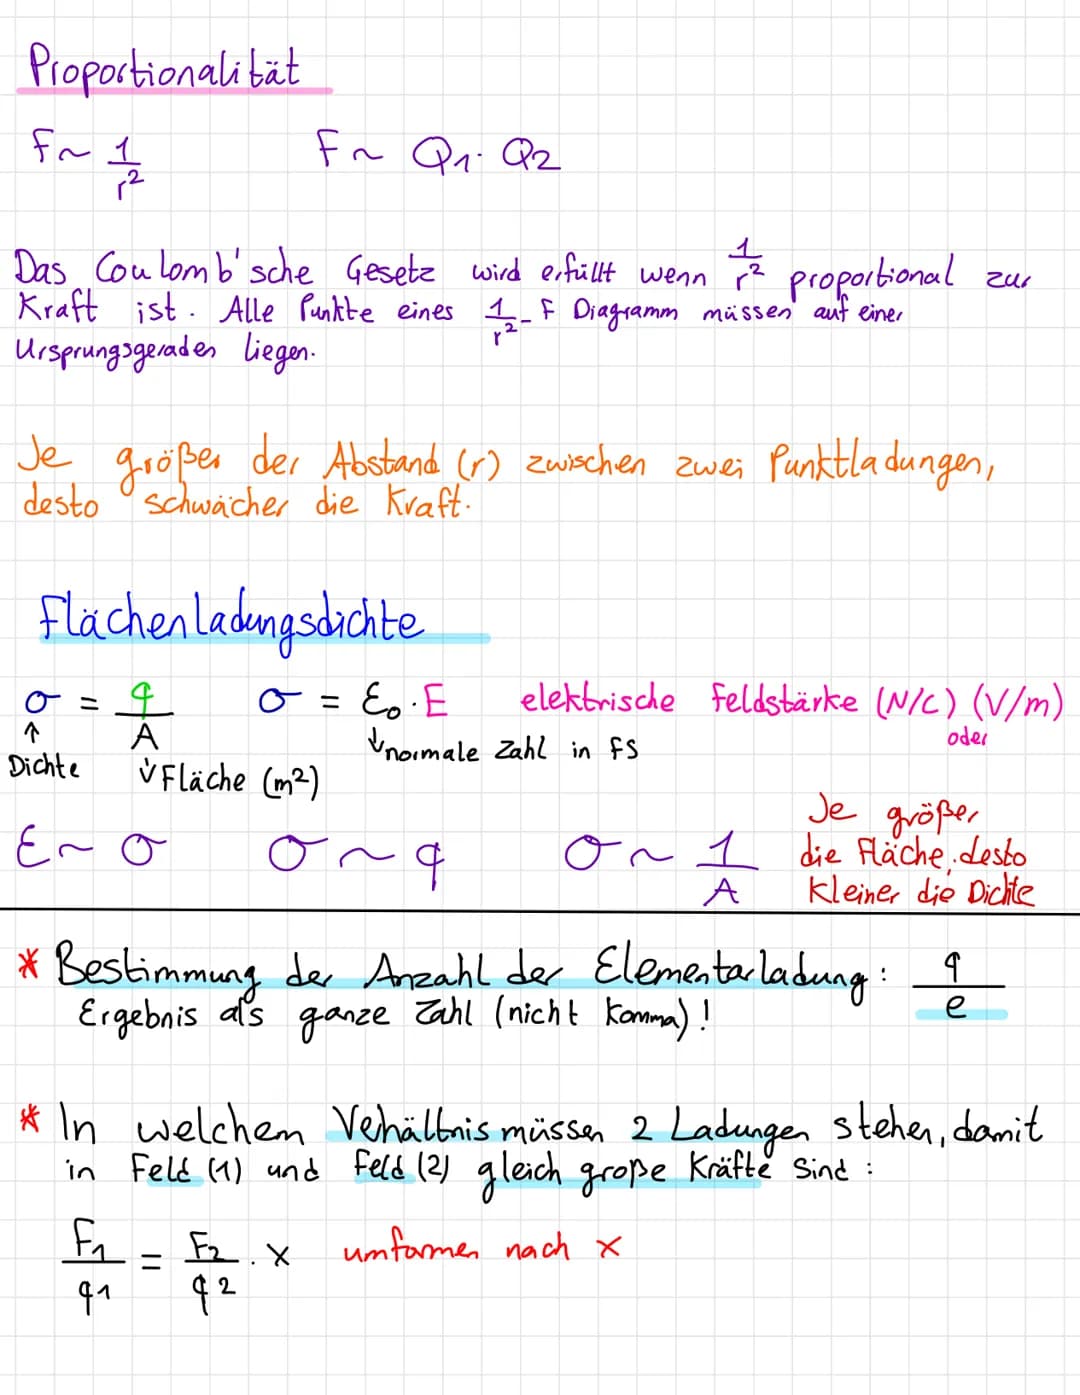 Proportionalität
F ~ 1/r²    F ~ Q1 · Q2
Das Coulomb'sche Gesetz wird erfüllt wenn 1/r² proportional zur
Kraft ist. Alle Punkte eines 1/r² - F Diagramm müssen auf einer
Ursprungsgeraden liegen.
Je größer der Abstand (r) zwischen zwei Punktladungen,
desto schwächer die Kraft.
Flächenladungsdichte
σ = q/A    σ = ε₀ · E    elektrische Feldstärke (N/C) (V/m)
oder
↑ Dichte    ↓ Fläche (m²)    ↓ normale Zahl in FS
E ~ σ    σ ~ q    σ ~ 1/A
Je größer
die Fläche, desto
kleiner die Dichte
* Bestimmung der Anzahl der Elementarladung: q/e
Ergebnis als ganze Zahl (nicht Komma)!
* In welchem Verhältnis müssen 2 Ladungen stehen, damit
in Feld (1) und Feld (2) gleich große Kräfte sind:
F1/q1 = F2/q2 · x    umformen nach x